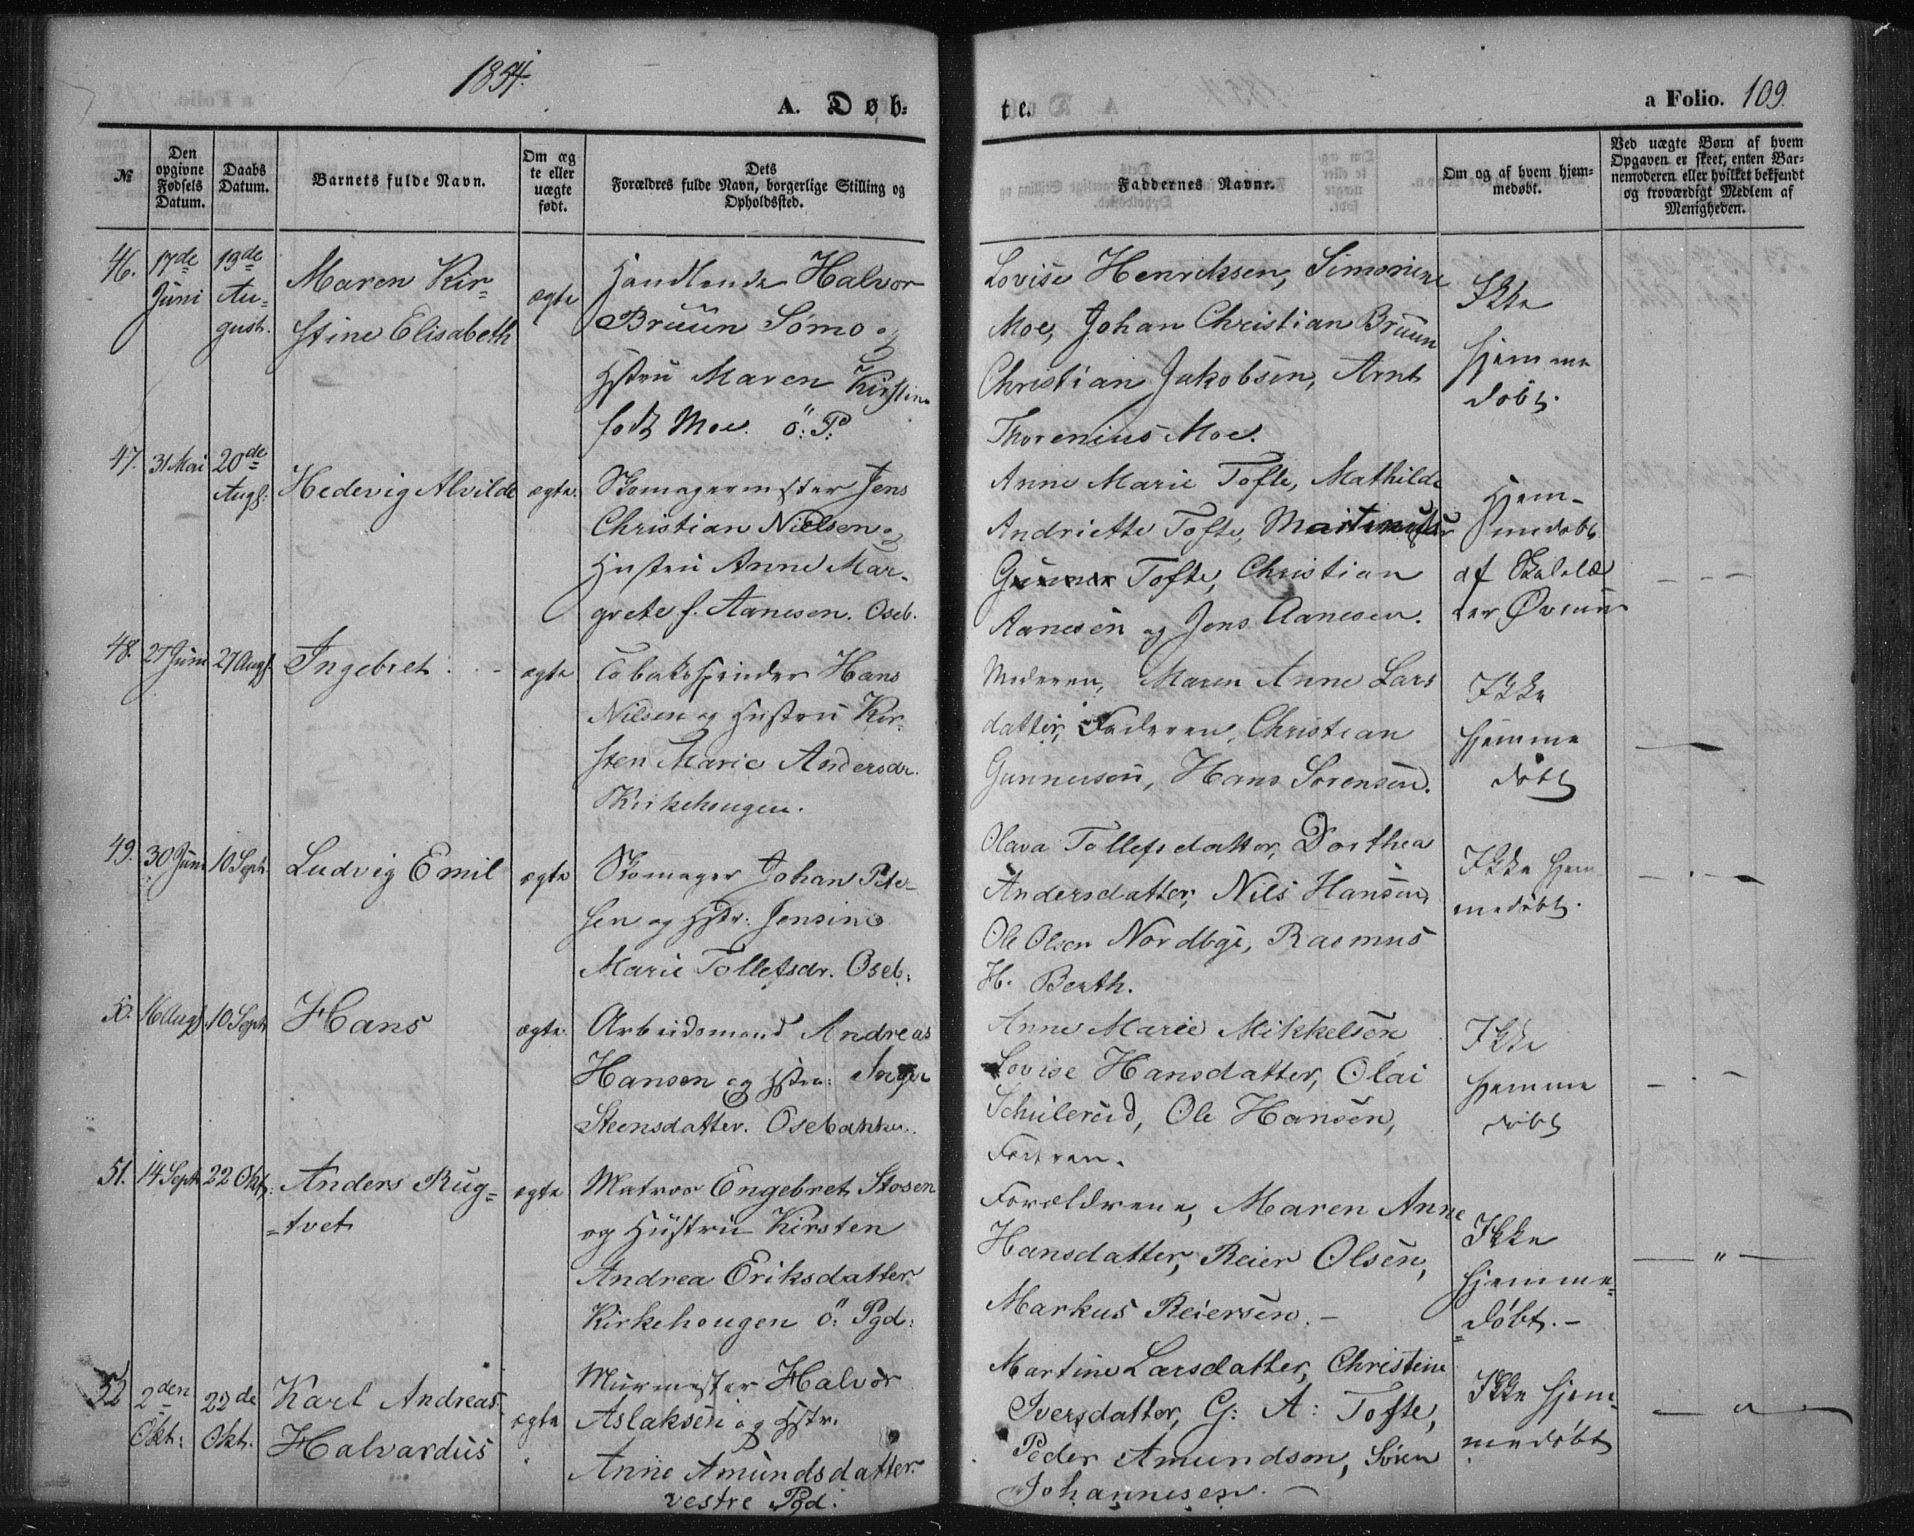 1854.
A. Døb=
te.
a Folio. 109.
№
Den opgivne Fødsels Datum.
Daabs Datum.
Barnets fulde Navn.
Om ægte eller uægte født.
Dets Forældres fulde Navn, borgerlige Stilling og Opholdssted.
Faddernes Navne.
Om og af hvem hjemmedøbt.
Ved uægte Børn af hvem Opgaven er skeet, enten Barnemoderen eller hvilket bekjendt og troværdigt Medlem af Menigheden.
46.
17de
Juni
19de
Au-
gust.
Maren Kir-
stine Elisabeth
ægte
Handlende Halvor
Bruun Sømo og
Hstru Maren Kirstine
født Moe. Ö: P:
Lovise Henriksen, Simonine
Moe, Johan Christian Bruun
Christian Jakobsen, Arnt
Thorenius Moe.
Ikke
hjemme
døbt.
47.
31 Mai
20de
Augs.
Hedevig Alvilde
ægte
Skomagermester Jens
Christian Nielsen og
Hustru Anne Mar-
grete f. Aanesen. Oseb.
Anne Marie Tofte, Mathilde
Andriette Tofte,
Gunner Tofte, Christian
Aanesen og Jens Aanesen.
Hjem-
medøbt
af Skolelæ
rer Øvrum
48.
27 Juni
27 Augs.
Ingebret
ægte
Tobaksspinder Hans
Nilsen og Hustru Kir-
sten Marie Andersdr.
Kirkehougen.
Moderen, Maren Anne Lars
datter, Faderen, Christian
Gunnersen, Hans Sørensen.
Ikke
hjemme
døbt
49.
30 Juni
10 Sept.
Ludvig Emil
ægte
Skomager Johan Peter-
sen og Hstr. Jensine
Marie Tollefsdr. Oseb.
Olava Tollefsdatter, Dorthea
Andersdatter, Nils Hansen,
Ole Olsen Nordbye, Rasmus
H. Berth.
Ikke hjem
medøbt.
50.
16 Augs
10 Sept
Hans
ægte
Arbeidsmand Andreas
Hansen og Hstru: Inger
Steensdatter. Osebakken.
Anne Marie Mikkelsen
Lovise Hansdatter, Olai
Schilerud, Ole Hansen,
Ikke
hjemme
døbt
51.
14 Sept
22 Okt.
Anders Rug=
=tvet
ægte
Matros Engebret Stosen
og Hustru Kirsten
Andrea Eriksdatter
Kirkehougen Ö: Pgd:
Forældrene, Maren Anne
Hansdatter, Reier Olsen,
Markus Reiersen. -
Ikke
hjemme=
=døbt. -
"
52
2den
Okt:
22de
Okt.
Karl Andreas
Halvardus
ægte
Murmester Halvor
Aslaksen og Hstr.
Anne Amundsdatter.
vestre Pgd:
Martine Larsdatter, Christine
Iversdatter, G: A: Tofte,
Peder Amundsen, Søren
Johannesen. -
Ikke hjem-
medøbt
"